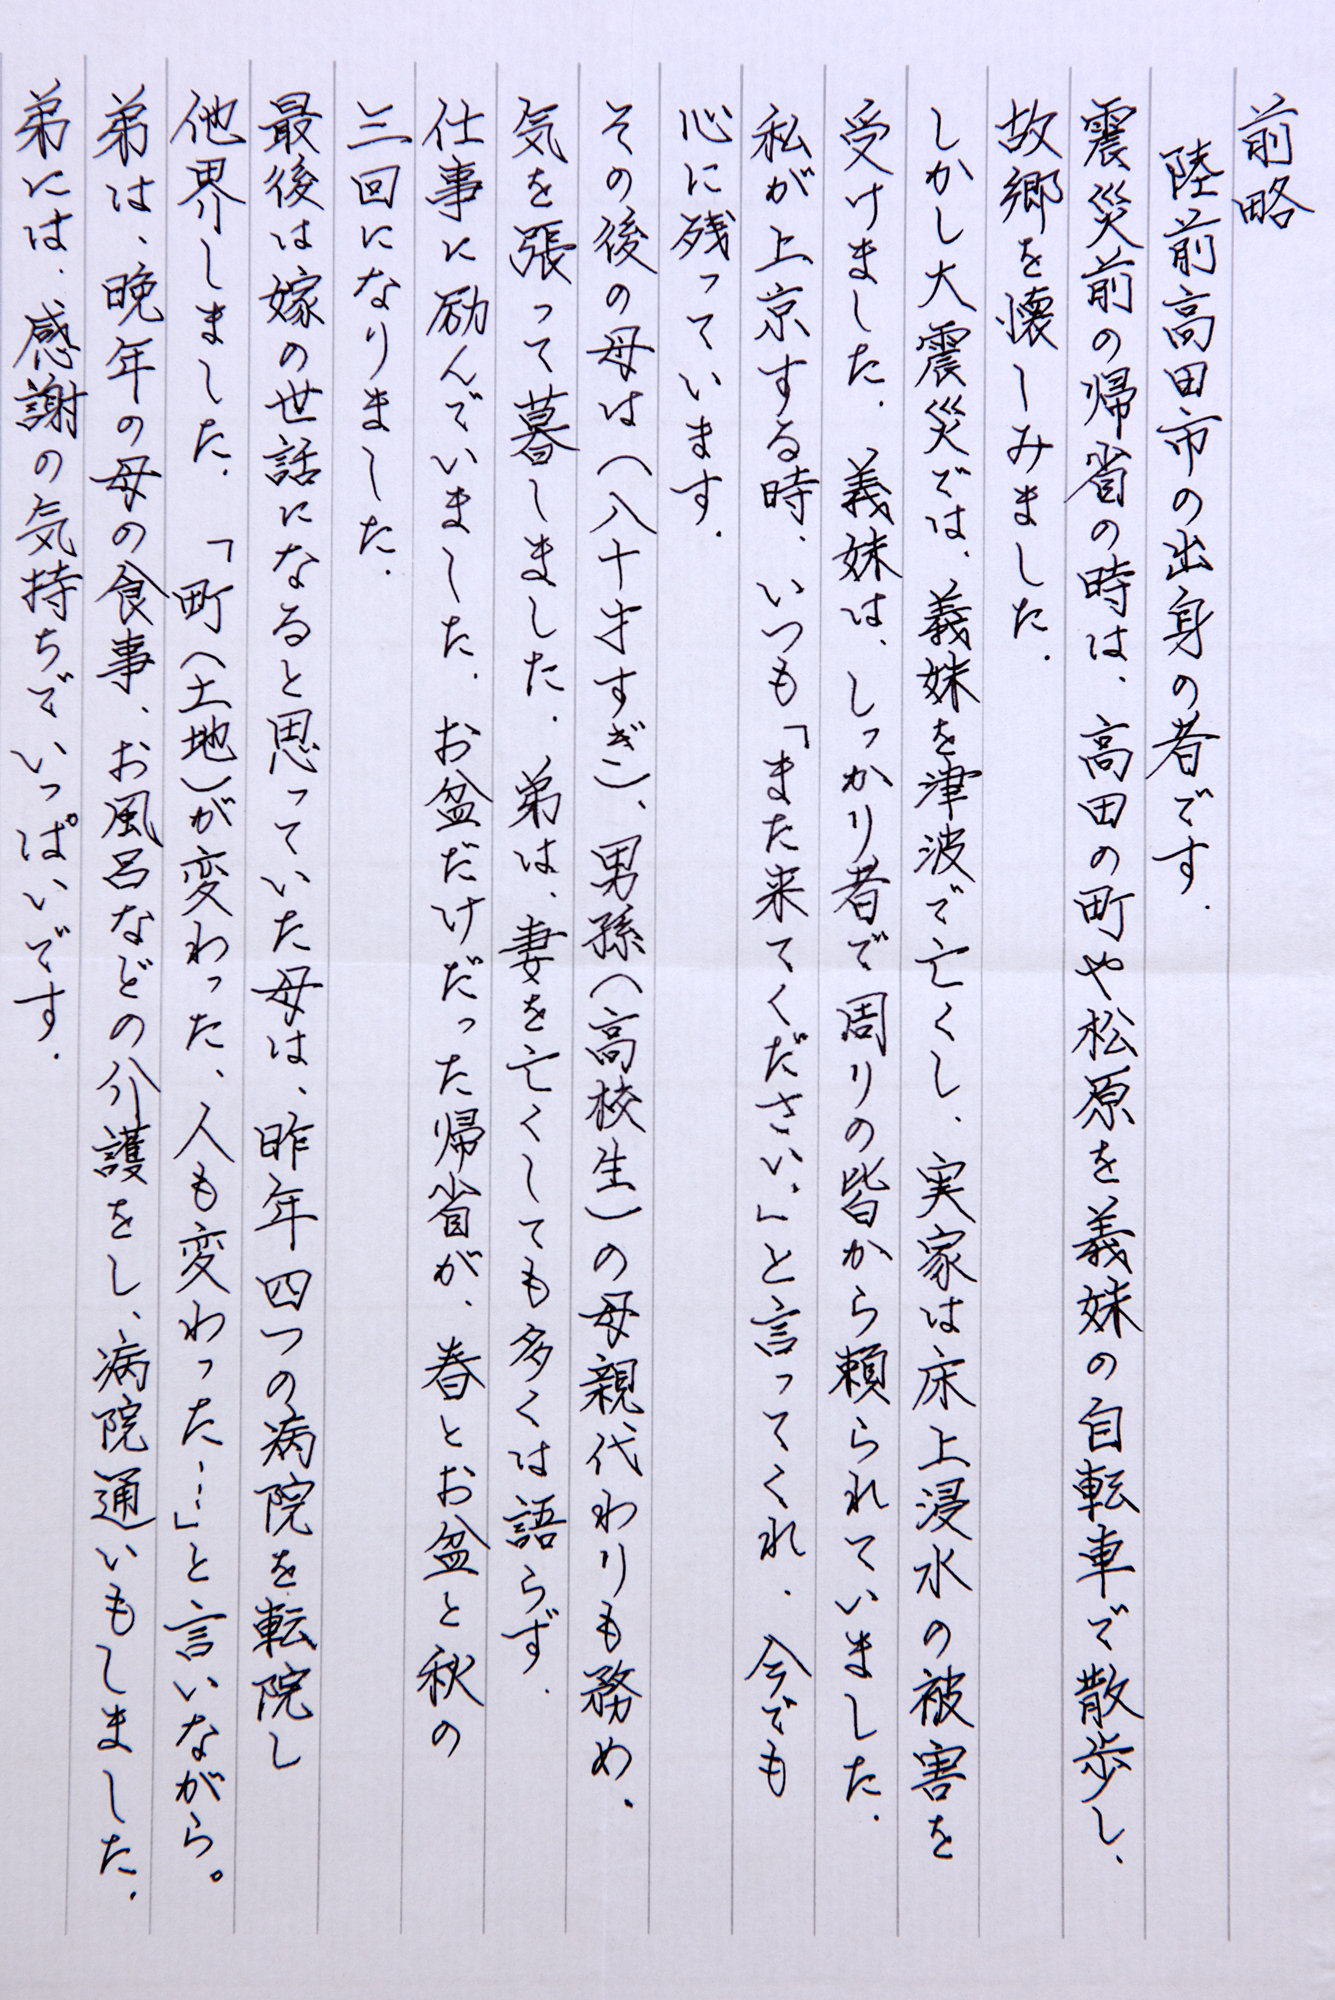 前略
陸前高田市の出身の者です.
震災前の帰省の時は、高田の町や松原を義妹の自転車で散歩し、
故郷を懐しみました.
しかし大震災では、義妹を津波で亡くし、実家は床上浸水の被害を
受けました. 義妹は、しっかり者で周りの皆から頼られていました.
私が上京する時、いつも「また来てください.」と言ってくれ、今でも
心に残っています.
その後の母は(八十才すぎ)、男孫(高校生)の母親代わりも務め、
気を張って暮しました. 弟は、妻を亡くしても多くは語らず、
仕事に励んでいました. お盆だけだった帰省が、春とお盆と秋の
三回になりました.
最後は嫁の世話になると思っていた母は、昨年四つの病院を転院し
他界しました. 「町(土地)が変わった、人も変わった…」と言いながら。
弟は、晩年の母の食事、お風呂などの介護をし、病院通いもしました.
弟には、感謝の気持ちでいっぱいです.